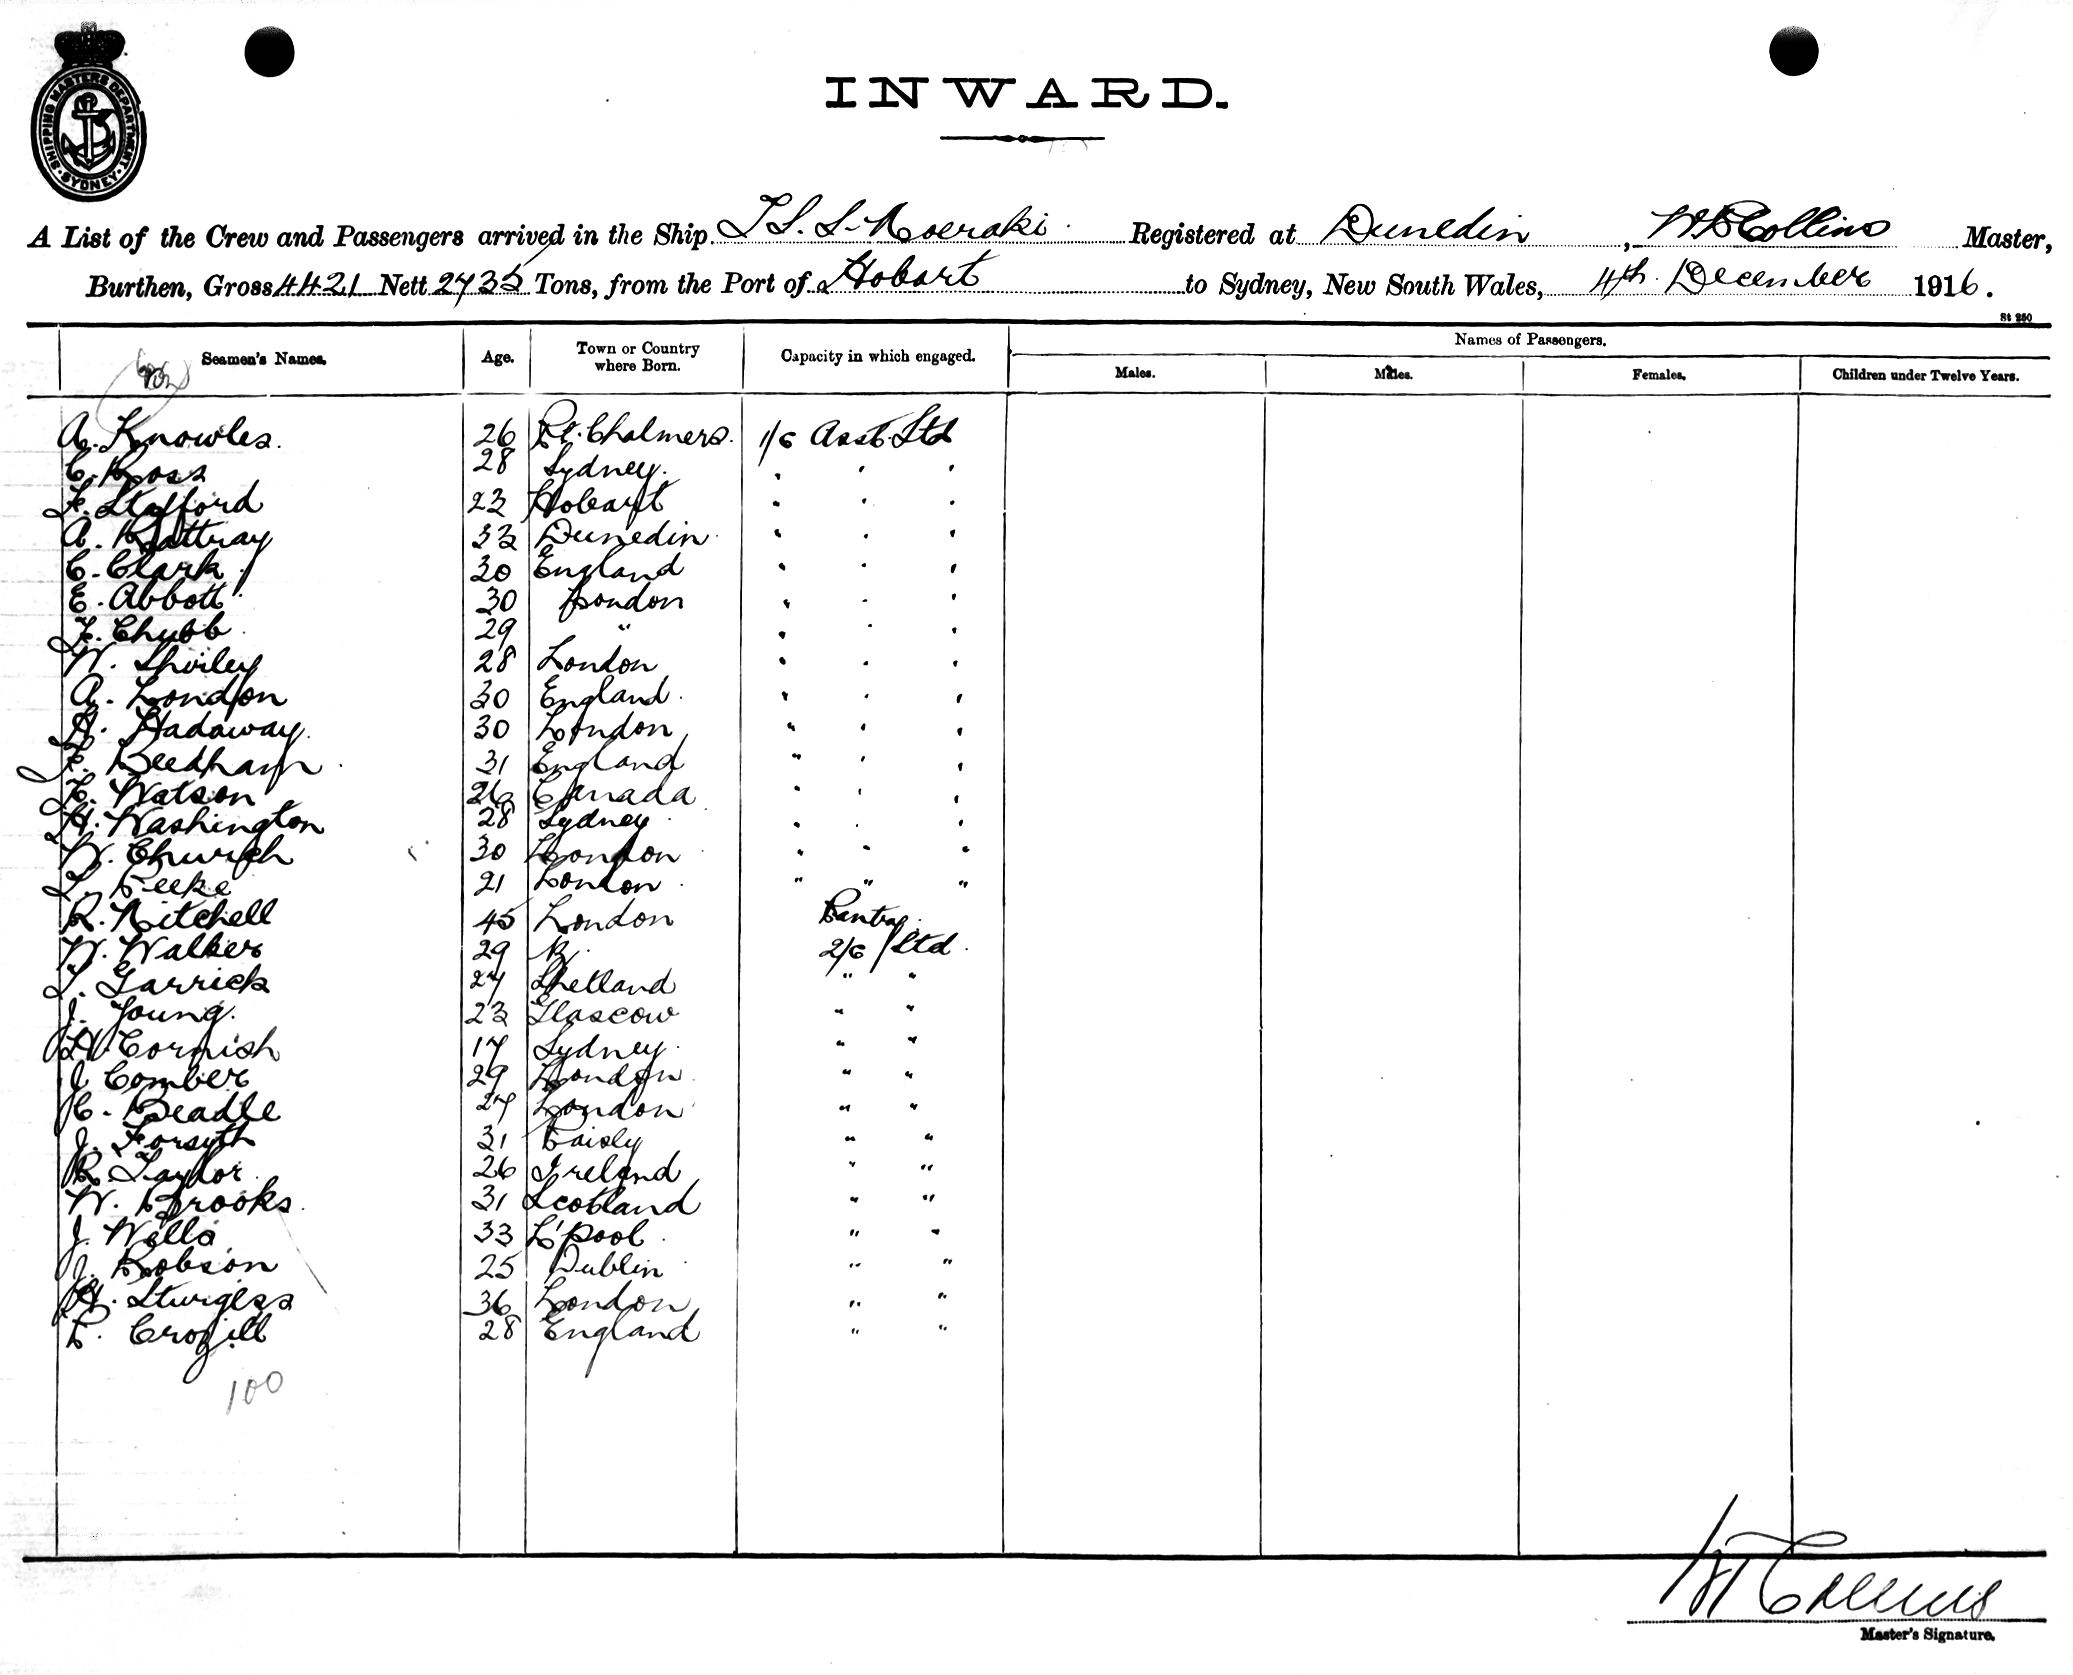 SHIPPING MASTERS DEPARTMENT SYDNEY
INWARD.
A List of the Crew and Passengers arrived in the Ship T.S.S. Moeraki Registered at Dunedin, Collins Master,
Burthen, Gross 4421 Nett 2735 Tons, from the Port of Hobart to Sydney, New South Wales, 4th December 1916.
St 250
Seamen's Names. Age. Town or Country where Born. Capacity in which engaged. Names of Passengers.
Males. Males. Females. Children under Twelve Years.
A. Knowles. 26 Pt. Chalmers. 1/c Asst. Std
C. Ross 28 Sydney. " " "
F. Stafford 23 Hobart " " "
A. Rattray 33 Dunedin " " "
C. Clark 30 England " " "
E. Abbott 30 London " " "
F. Chubb 29 " " " "
W. Shirley 28 London " " "
A. London 30 England " " "
H. Hadaway. 30 London " " "
F. Beedham 31 England " " "
F. Watson 26 Canada " " "
H. Washington 28 Sydney " " "
W. Church 30 London " " "
L. Peeke 21 London " " "
R. Mitchell 45 London Pantry.
W. Walker 29 2/c Std.
T. Garrick 27 Shetland " "
J. Young. 23 Glascow " "
H. Cornish 17 Sydney. " "
J Comber 29 London " "
C. Beadle 27 London " "
J. Forsyth 31 Paisly " "
R. Taylor 26 Ireland " "
W. Brooks. 31 Scotland " "
J. Wells 33 L'pool " "
J. Robson 25 Dublin " "
H. Sturgess 36 London " "
28 England " "
100
Collins
Master's Signature.